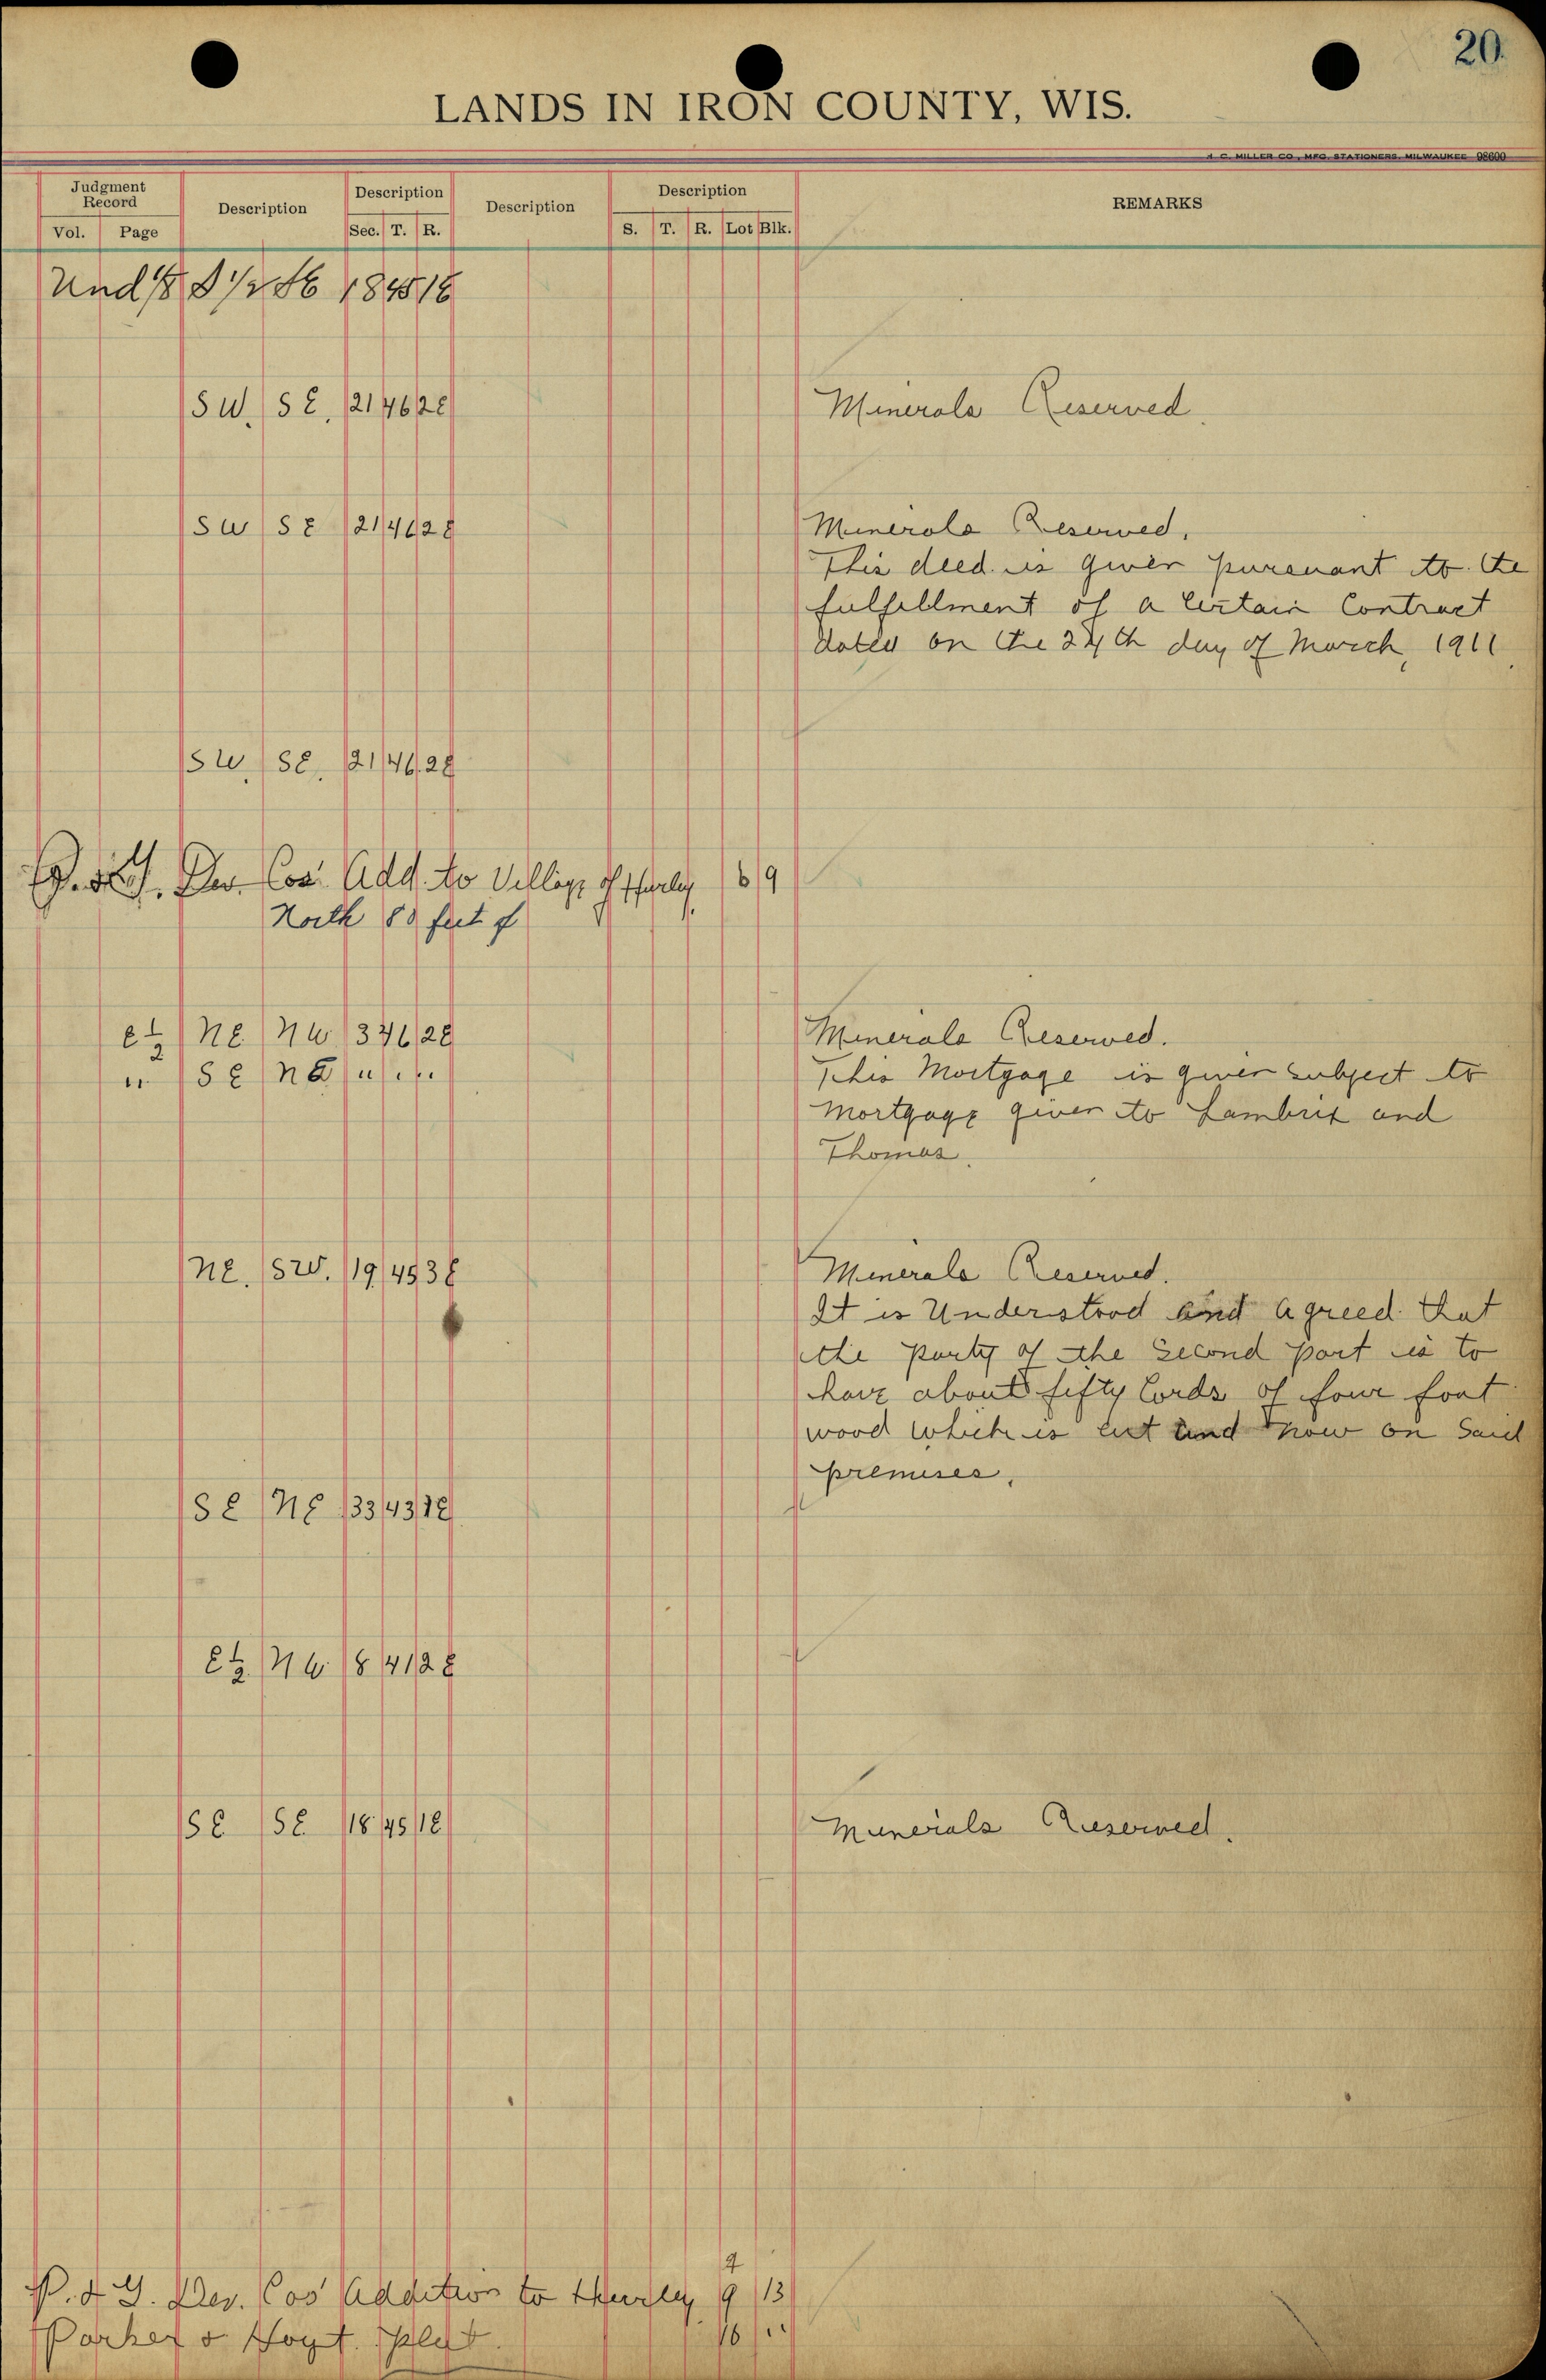 20
LANDS IN IRON COUNTY, WIS.
H. C. MILLER CO., MFG. STATIONERS, MILWAUKEE 98600
Judgment Record Description Description Description Description REMARKS
Vol. Page Sec. T. R. S. T. R. Lot Blk.
Und 1/8 S 1/2 18 45 1E
SW. SE. 21 46 2E Minerals Reserved.
SW SE 21 46 2E Minerals Reserved.
This deed is given pursuant to the
fulfillment of a Certain Contract
dated on the 24th day of March, 1911
SW. SE. 21 46 2E
P. & G. Dev. Cos. Add. to Village of Hurley 6 9
North 80 feet of
E 1/2 NE NW 3 46 2E Minerals Reserved.
" SE NE " " " This Mortgage is given subject to
Mortgage given to Lambrix and
Thomas.
NE. SW. 19 45 3E Minerals Reserved.
It is Understood and Agreed that
the party of the Second part is to
have about fifty Cords of four foot
wood which is cut and now on Said
premises.
SE NE 33 43 1E
E 1/2 NW 8 41 2E
SE SE 18 45 1E Minerals Reserved.
9
P. & G. Dev. Cos' Addition to Hurley 9 13
Parker & Hoyt. Plat. 16 "